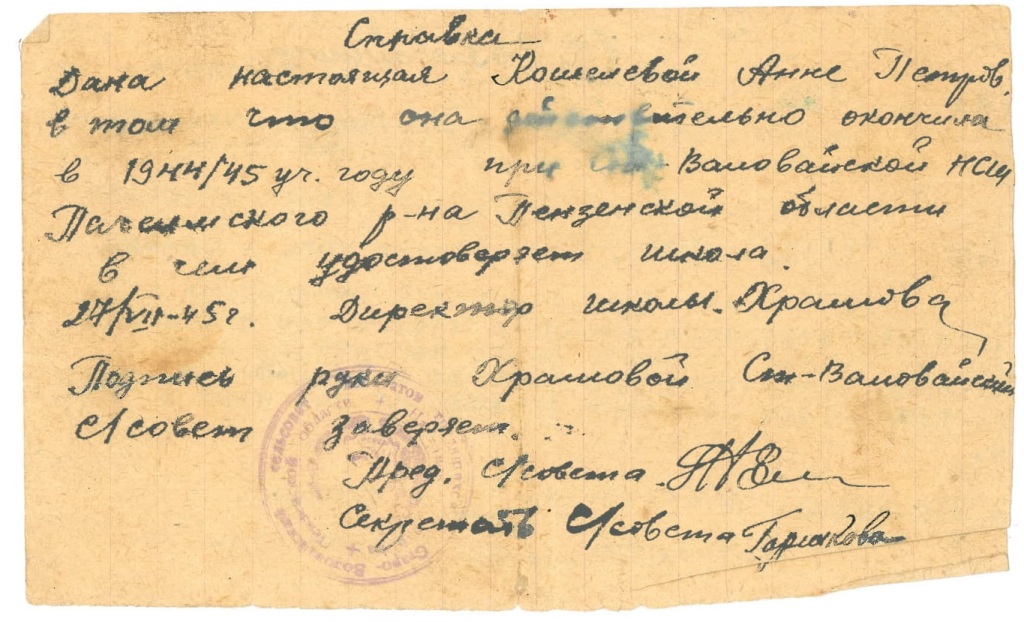 Справка
Дана настоящая Кошелевой Анне Петров.
в том что она действительно окончила
в 1944/45 уч. году при Ст-Валовайской НСШ
Пачелмского р-на Пензенской области
в чем удостоверяет школа.
27/VII-45г. Директор школы. Храмова
Подпись руки Храмовой Ст-Валовайский
с/совет заверяет.
Пред. с/совета.
Секретать с/совета